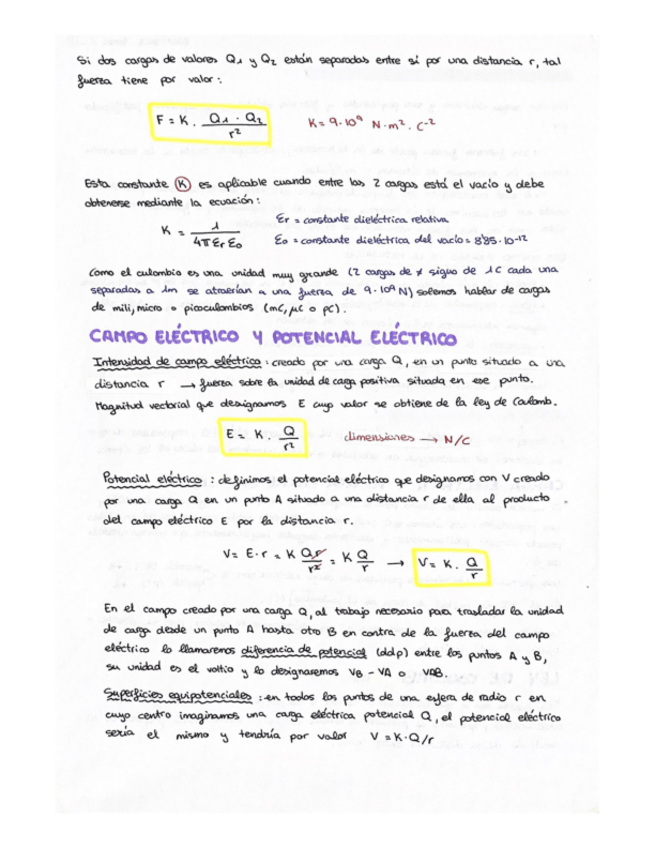 Si dos cargas de valores Q1 y Q2 están separadas entre sí por una distancia r, tal
fuerza tiene por valor:
F = K · Q1 · Q2 / r²
K = 9·10⁹ N·m²·C⁻²
Esta constante (K) es aplicable cuando entre las 2 cargas está el vacío y debe
obtenerse mediante la ecuación:
K = 1 / 4πεrε0
εr = constante dieléctrica relativa
ε0 = constante dieléctrica del vacío = 8'85·10-12
Como el culombio es una unidad muy grande (2 cargas de ≠ signo de 1C cada una
separadas a 1m se atraerían a una fuerza de 9·10⁹ N) solemos hablar de cargas
de mili, micro o picoculombios (mC, μC o pC).
CAMPO ELÉCTRICO Y POTENCIAL ELÉCTRICO
Intensidad de campo eléctrico: creado por una carga Q, en un punto situado a una
distancia r → fuerza sobre la unidad de carga positiva situada en ese punto.
Magnitud vectorial que designamos E cuyo valor se obtiene de la ley de Coulomb.
E = K · Q / r²
dimensiones → N/C
Potencial eléctrico: definimos el potencial eléctrico que designamos con V creado
por una carga Q en un punto A situado a una distancia r de ella al producto
del campo eléctrico E por la distancia r.
V = E·r = K Qr / r² = K Q / r → V = K · Q / r
En el campo creado por una carga Q, al trabajo necesario para trasladar la unidad
de carga desde un punto A hasta otro B en contra de la fuerza del campo
eléctrico lo llamaremos diferencia de potencial (ddp) entre los puntos A y B,
su unidad es el voltio y lo designaremos VB - VA o VAB.
Superficies equipotenciales: en todos los puntos de una esfera de radio r en
cuyo centro imaginamos una carga eléctrica potencial Q, el potencial eléctrico
sería el mismo y tendría por valor V = K·Q/r